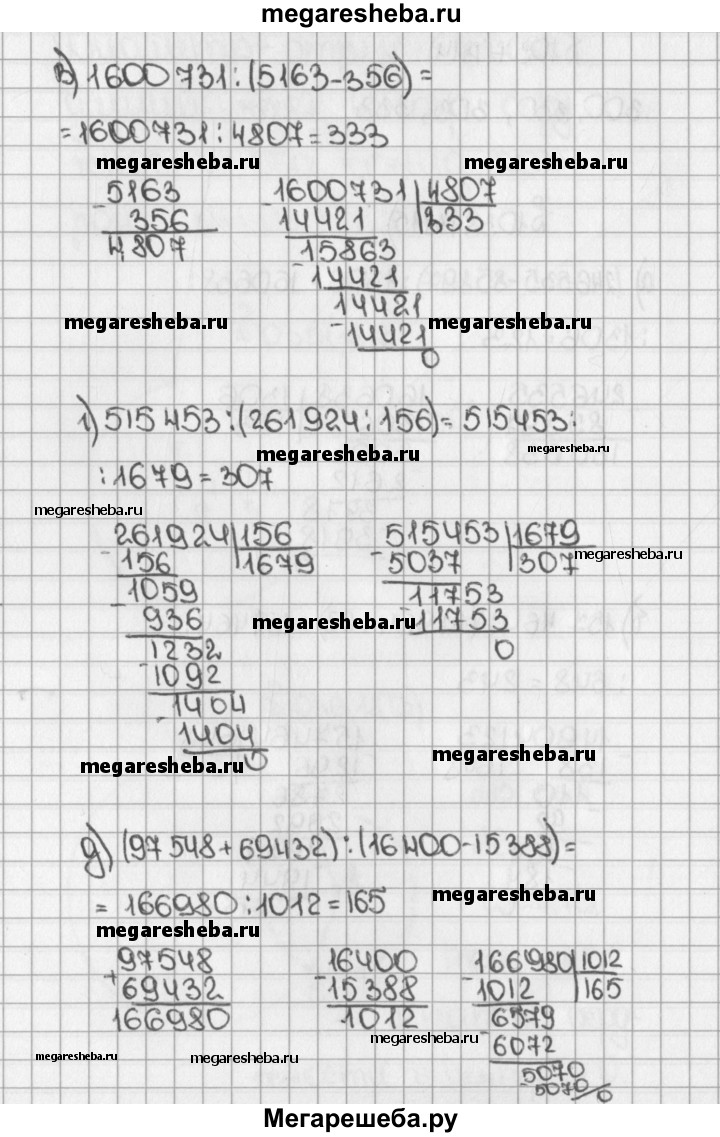 megaresheba.ru
в) 1600731:(5163-356)=
=1600731:4807=333
megaresheba.ru megaresheba.ru
5163 1600731 4807
- 356 - 14421 333
4807 15863
- 14421
14421
megaresheba.ru megaresheba.ru
- 14421
0
г) 515453:(261924:156)=515453:
megaresheba.ru megaresheba.ru
:1679=307
megaresheba.ru
261924 156 515453 1679
- 156 1679 - 5037 307 megaresheba.ru
1059 11753
- 936 megaresheba.ru - 11753
1232 0
- 1092
1404
- 1404 megaresheba.ru
megaresheba.ru 0
д) (97548+69432):(16400-15388)=
= 166980:1012=165 megaresheba.ru
megaresheba.ru
97548 16400 166980 1012
+ 69432 - 15388 - 1012 165
166980 1012 6579
megaresheba.ru megaresheba.ru megaresheba.ru - 6072
5070
- 5070
0
Мегарешеба.ру